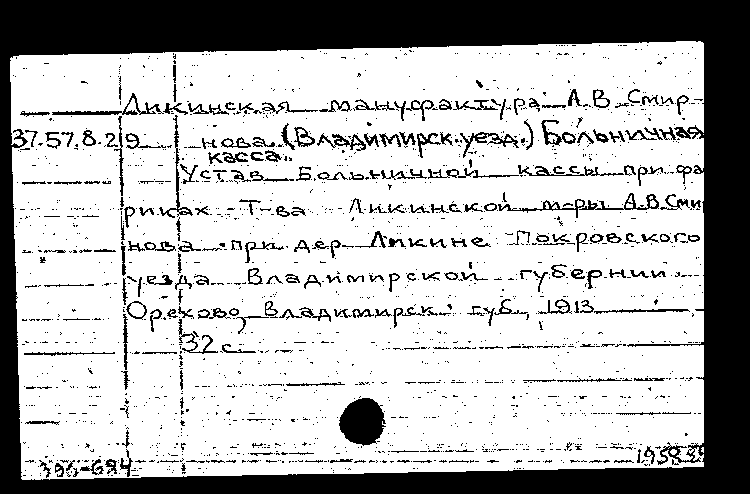 Ликинская мануфактура А.В. Смир-
37.57.8.29 нова (Владимирск. уезд.) Больничная
касса.
Устав Больничной кассы при фа
риках Т-ва Ликинской м-ры А.В. Сми
нова при дер. Ликине Покровского
уезда Владимирской губернии.
Орехово, Владимирск. губ., 1913
32 с.